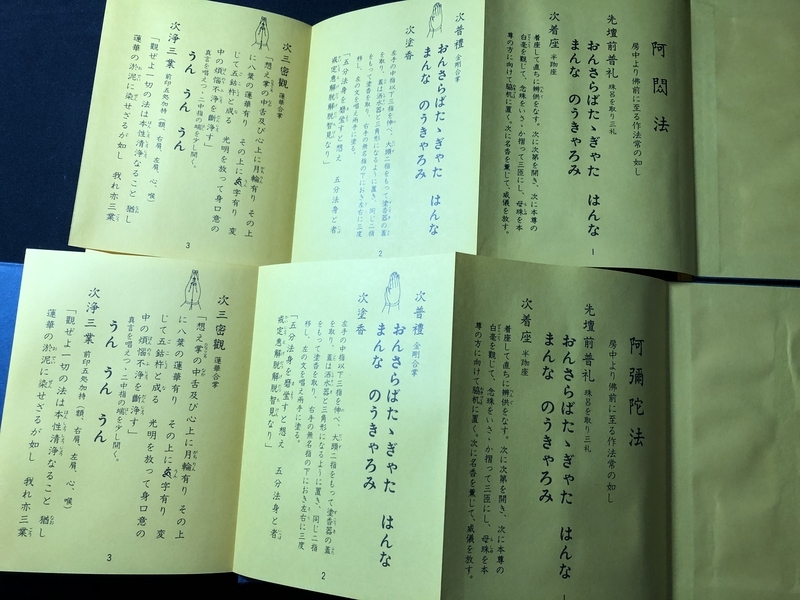 阿閦法
房中より佛前に至る作法常の如し
先壇前普礼 珠呂を取り三礼
おんさらばたゝぎゃた はんな
まんな のうきゃろみ
次着座 半跏座
着座して直ちに辨供をなす。次に次第を開き、次に本尊の
白毫を觀じて、念珠をいさゝか摺って三匝にし、母珠を本
尊の方に向けて脇机に置く。次に名香を薫じて、威儀を放す。
1
次普禮 金剛合掌
おんさらばたゝぎゃた はんな
まんな のうきゃろみ
次塗香
左手の中指以下三指を伸べ、大頭二指をもって塗香器の蓋
を取り、蓋は洒水器と三角形になるように置き、同じ二指
をもって塗香を取り、右手の無名指の下におき左右に三度
移し、左の文を唱え兩手に塗る。
「五分法身を磨瑩すと想え 五分法身と者
戒定慧解脱解脱智見なり」
2
次三密觀 蓮華合掌
「想え掌の中舌及び心上に月輪有り その上
に八葉の蓮華有り その上に字有り 変
じて五鈷杵と成る 光明を放って身口意の
中の煩惱不浄を斷浄す」
真言を唱えつゝ二中指の端を少し開く。
うん うん うん
次浄三業 前印五処加持(額、右肩、左肩、心、喉)
「觀ぜよ一切の法は本性清浄なること 猶し
蓮華の淤泥に染せざるが如し 我れ亦三業
3
阿彌陀法
房中より佛前に至る作法常の如し
先壇前普礼 珠呂を取り三礼
おんさらばたゝぎゃた はんな
まんな のうきゃろみ
次着座 半跏座
着座して直ちに辨供をなす。次に次第を開き、次に本尊の
白毫を觀じて、念珠をいさゝか摺って三匝にし、母珠を本
尊の方に向けて脇机に置く。次に名香を薫じて、威儀を放す。
1
次普禮 金剛合掌
おんさらばたゝぎゃた はんな
まんな のうきゃろみ
次塗香
左手の中指以下三指を伸べ、大頭二指をもって塗香器の蓋
を取り、蓋は洒水器と三角形になるように置き、同じ二指
をもって塗香を取り、右手の無名指の下におき左右に三度
移し、左の文を唱え兩手に塗る。
「五分法身を磨瑩すと想え 五分法身と者
戒定慧解脱解脱智見なり」
2
次三密觀 蓮華合掌
「想え掌の中舌及び心上に月輪有り その上
に八葉の蓮華有り その上に字有り 変
じて五鈷杵と成る 光明を放って身口意の
中の煩惱不浄を斷浄す」
真言を唱えつゝ二中指の端を少し開く。
うん うん うん
次浄三業 前印五処加持(額、右肩、左肩、心、喉)
「觀ぜよ一切の法は本性清浄なること 猶し
蓮華の淤泥に染せざるが如し 我れ亦三業
3